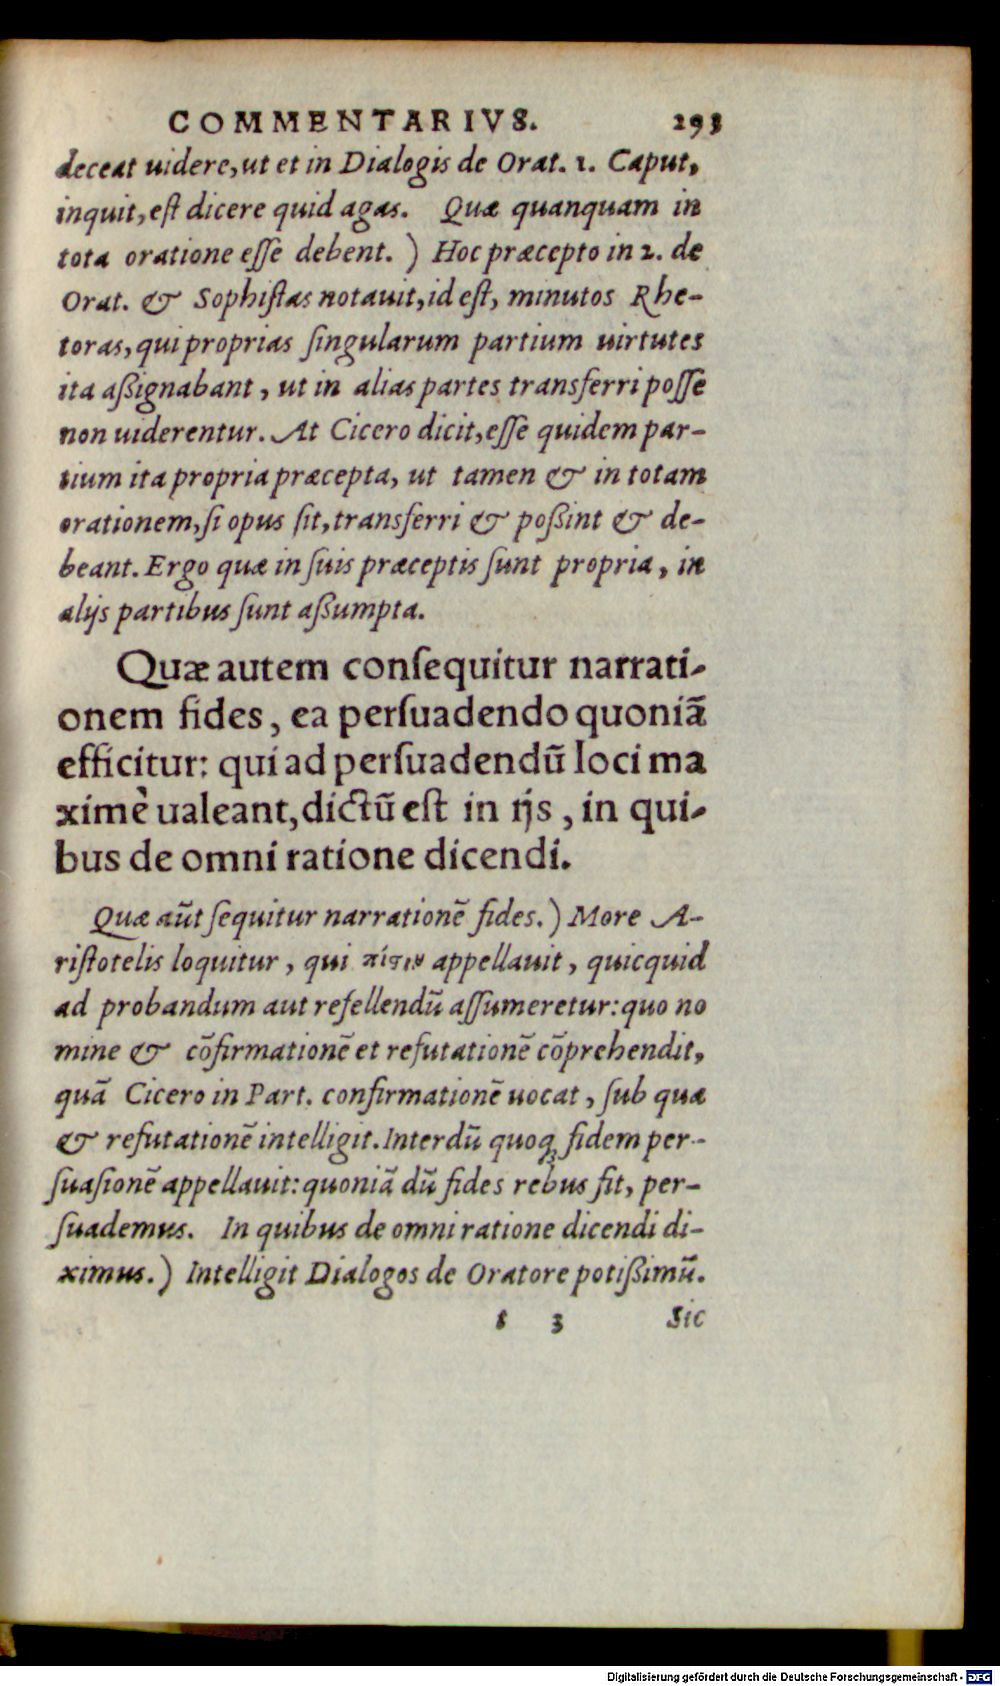 COMMENTARIVS. 293
deceat uidere, ut et in Dialogis de Orat. 1. Caput,
inquit, est dicere quid agas. Quæ quanquam in
tota oratione esse debent. ) Hoc præcepto in 2. de
Orat. & Sophistas notauit, id est, minutos Rhe-
toras, qui proprias singularum partium uirtutes
ita aßignabant, ut in alias partes transferri posse
non uiderentur. At Cicero dicit, esse quidem par-
tium ita propria præcepta, ut tamen & in totam
orationem, si opus sit, transferri & poßint & de-
beant. Ergo quæ in suis præceptis sunt propria, in
alijs partibus sunt aßumpta.
Quæ autem consequitur narrati-
onem fides, ea persuadendo quoniã
efficitur: qui ad persuadendũ loci ma
ximè ualeant, dictũ est in ijs, in qui-
bus de omni ratione dicendi.
Quæ aũt sequitur narrationẽ fides. ) More A-
ristotelis loquitur, qui πίστιν appellauit, quicquid
ad probandum aut refellendũ assumeretur: quo no
mine & cõfirmationẽ et refutationẽ cõprehendit,
quã Cicero in Part. confirmationẽ uocat, sub qua
& refutationẽ intelligit. Interdũ quoq; fidem per-
suasionẽ appellauit: quoniã dũ fides rebus fit, per-
suademus. In quibus de omni ratione dicendi di-
ximus. ) Intelligit Dialogos de Oratore potißimũ.
s 3 Sic
Digitalisierung gefördert durch die Deutsche Forschungsgemeinschaft - DFG